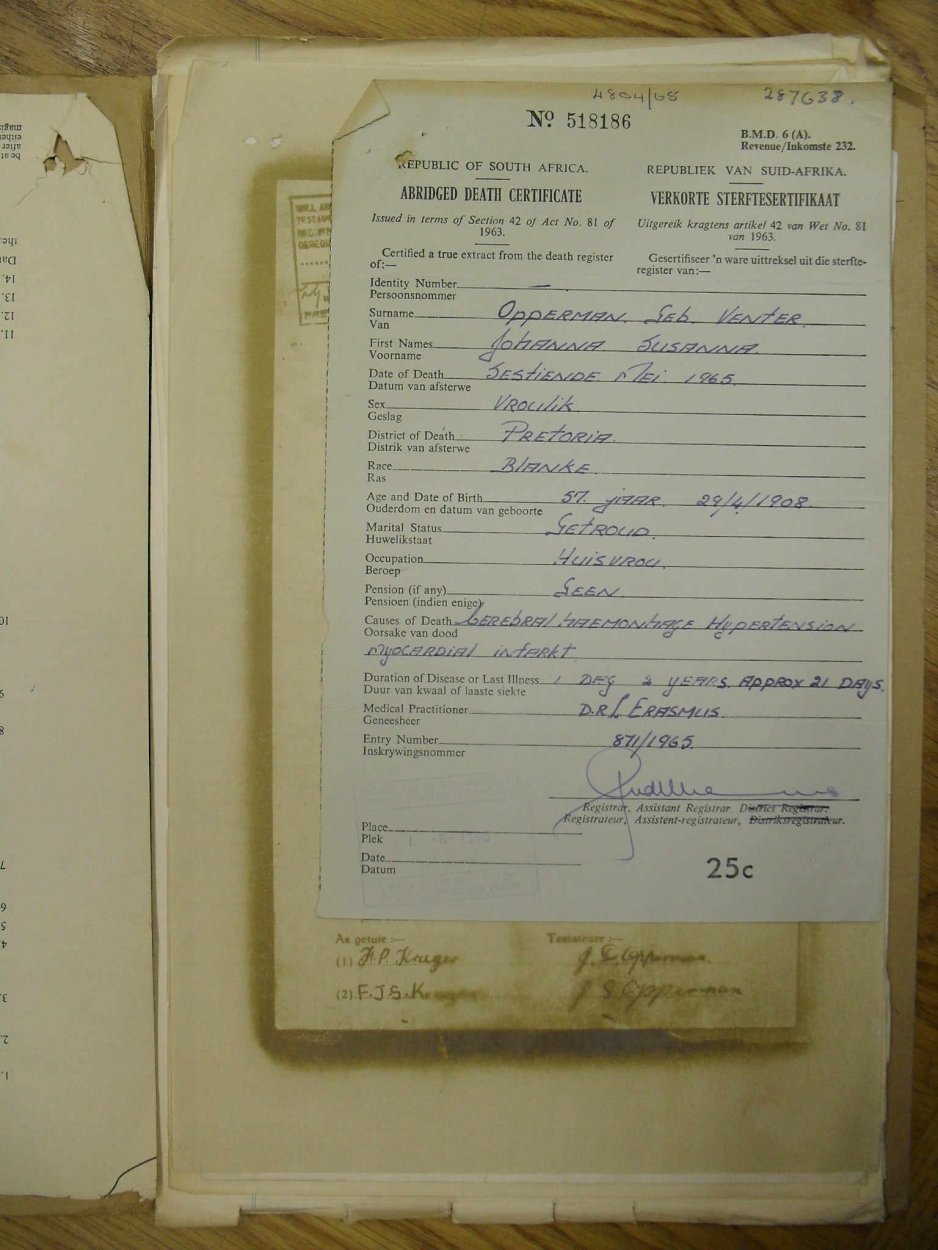 4804/65 287638.
Nº 518186
B.M.D. 6 (A).
Revenue/Inkomste 232.
REPUBLIC OF SOUTH AFRICA.
ABRIDGED DEATH CERTIFICATE
Issued in terms of Section 42 of Act No. 81 of
1963.
Certified a true extract from the death register
of:—
REPUBLIEK VAN SUID-AFRIKA.
VERKORTE STERFTESERTIFIKAAT
Uitgereik kragtens artikel 42 van Wet No. 81
van 1963.
Gesertifiseer 'n ware uittreksel uit die sterfte-
register van:—
Identity Number —
Persoonsnommer
Surname OPPERMAN GEB. VENTER
Van
First Names JOHANNA SUSANNA
Voorname
Date of Death SESTIENDE MEI 1965
Datum van afsterwe
Sex VROULIK
Geslag
District of Death PRETORIA
Distrik van afsterwe
Race BLANKE
Ras
Age and Date of Birth 57 JAAR 29/4/1908
Ouderdom en datum van geboorte
Marital Status GETROUD
Huwelikstaat
Occupation HUISVROU
Beroep
Pension (if any) GEEN
Pensioen (indien enige)
Causes of Death CEREBRAL HAEMONHAGE HYPERTENSION
Oorsake van dood
MYOCARDIAL INFARKT
Duration of Disease or Last Illness 1 DAG 2 YEARS APPROX 21 DAYS.
Duur van kwaal of laaste siekte
Medical Practitioner D.R L ERASMUS
Geneesheer
Entry Number 871/1965
Inskrywingsnommer
Registrar, Assistant Registrar District Registrar.
Registrateur, Assistent-registrateur, Distriksregistrateur.
Place
Plek
Date
Datum
25c
As getuie :—
(1) F.P. Kruger
(2) F.J.S.
Testateure :—
Opperman
J S Opperman